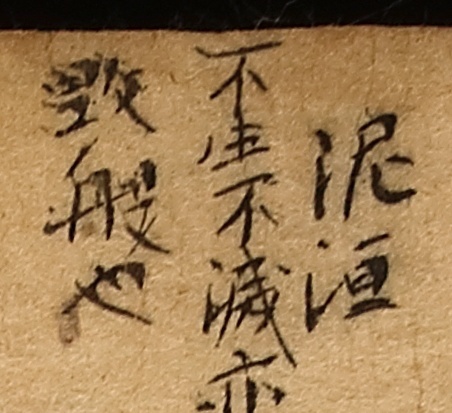 泥洹
不生不滅亦
般也